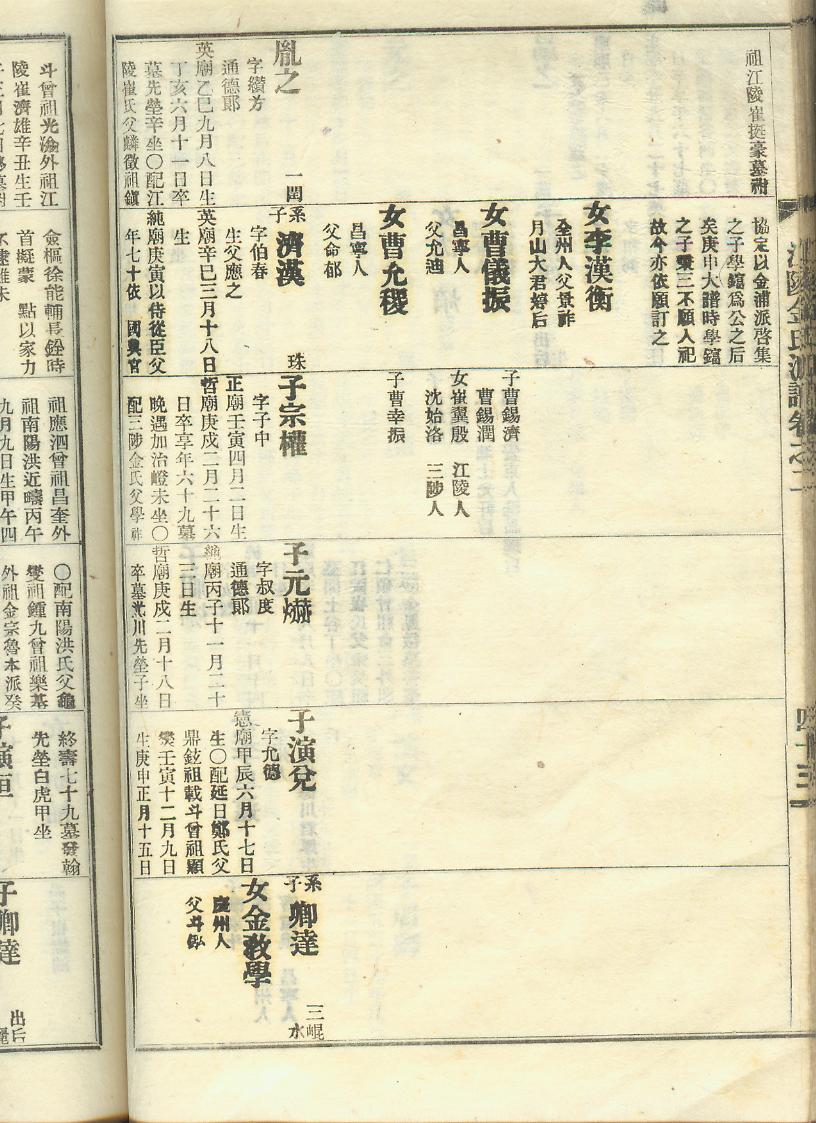 江陵金氏派譜卷之二
四十三
祖江陵崔挺豪墓祔
胤之
字纘方
通德郞
英廟乙巳九月八日生
丁亥六月十一日卒
墓先塋辛坐〇配江
陵崔氏父麟徵祖鎭
一閏
協定以金浦派啓集
之子學鎰爲公之后
矣庚申大譜時學鎰
之子秉三不願人祀
故今亦依願訂之
女李漢衡
全州人父景祚
月山大君婷后
女曹儀振
昌寧人
父允迪
女曹允稷
昌寧人
父命郁
系子濟漢
字伯春
生父應之
英廟辛巳三月十八日
生
純廟庚寅以侍從臣父
年七十依 國典官
珠
子曹錫濟
曹錫潤
女崔翼殷 江陵人
沈始洛 三陟人
子曹幸振
子宗權
字子中
正廟壬寅四月二日生
哲廟庚戌二月二十六
日卒享年六十九墓
晩遇加治嶝未坐〇
配三陟金氏父學祚
子元爀
字叔度
通德郞
純廟丙子十一月二十
三日生
哲廟庚戌二月十八日
卒墓 川先塋子坐
子演兌
字允德
憲廟甲辰六月十七日
生〇配延日鄭氏父
鼎鉉祖載斗曾祖顯
爕壬寅十二月九日
生庚申正月十五日
系子卿達
三崐水
女金敎學
慶州人
父斗
斗曾祖光瀹外祖江
陵崔濟雄辛丑生壬
僉樞徐能輔長銓時
首擬蒙 點以家力
祖應泗曾祖昌奎外
祖南陽洪近疇丙午
九月九日生甲午四
〇配南陽洪氏父龜
燮祖鍾九曾祖樂基
外祖金宗魯本派癸
終壽七十九墓發翰
先塋白虎甲坐
子演
子卿達
出后